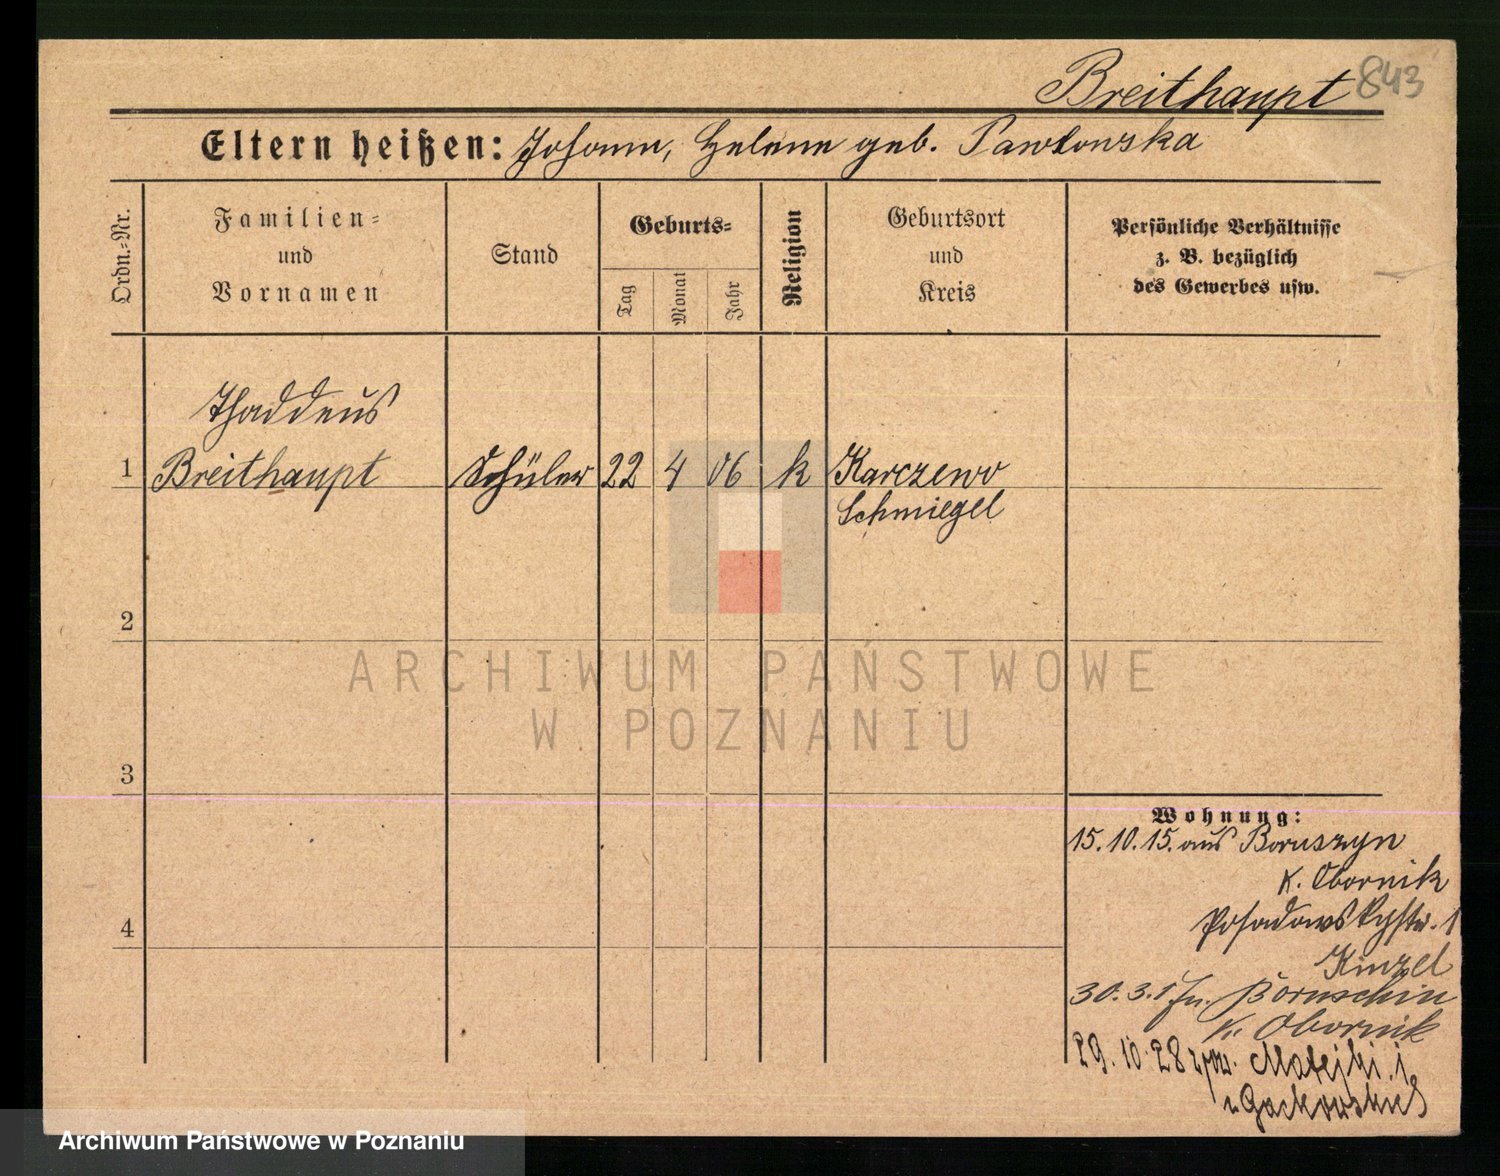 Breithaupt 843
Eltern heißen: Johann, Helene geb. Pawłowska
Ordn.=Nr.
Familien=
und
Vornamen
Stand
Geburts=
Tag
Monat
Jahr
Religion
Geburtsort
und
Kreis
Persönliche Verhältnisse
z. B. bezüglich
des Gewerbes usw.
Thaddeus
1 Breithaupt Schüler 22 4 06 k Karczewo
Schmiegel
2
3
4
Wohnung:
15.10.15. aus Boruszyn
K. Obornik
Posadowskystr. 1
Kinzel
30.3. Boruschin
K. Obornik
29.10.28 Matejki 1
u Gackowskiej
ARCHIWUM PAŃSTWOWE
W POZNANIU
Archiwum Państwowe w Poznaniu